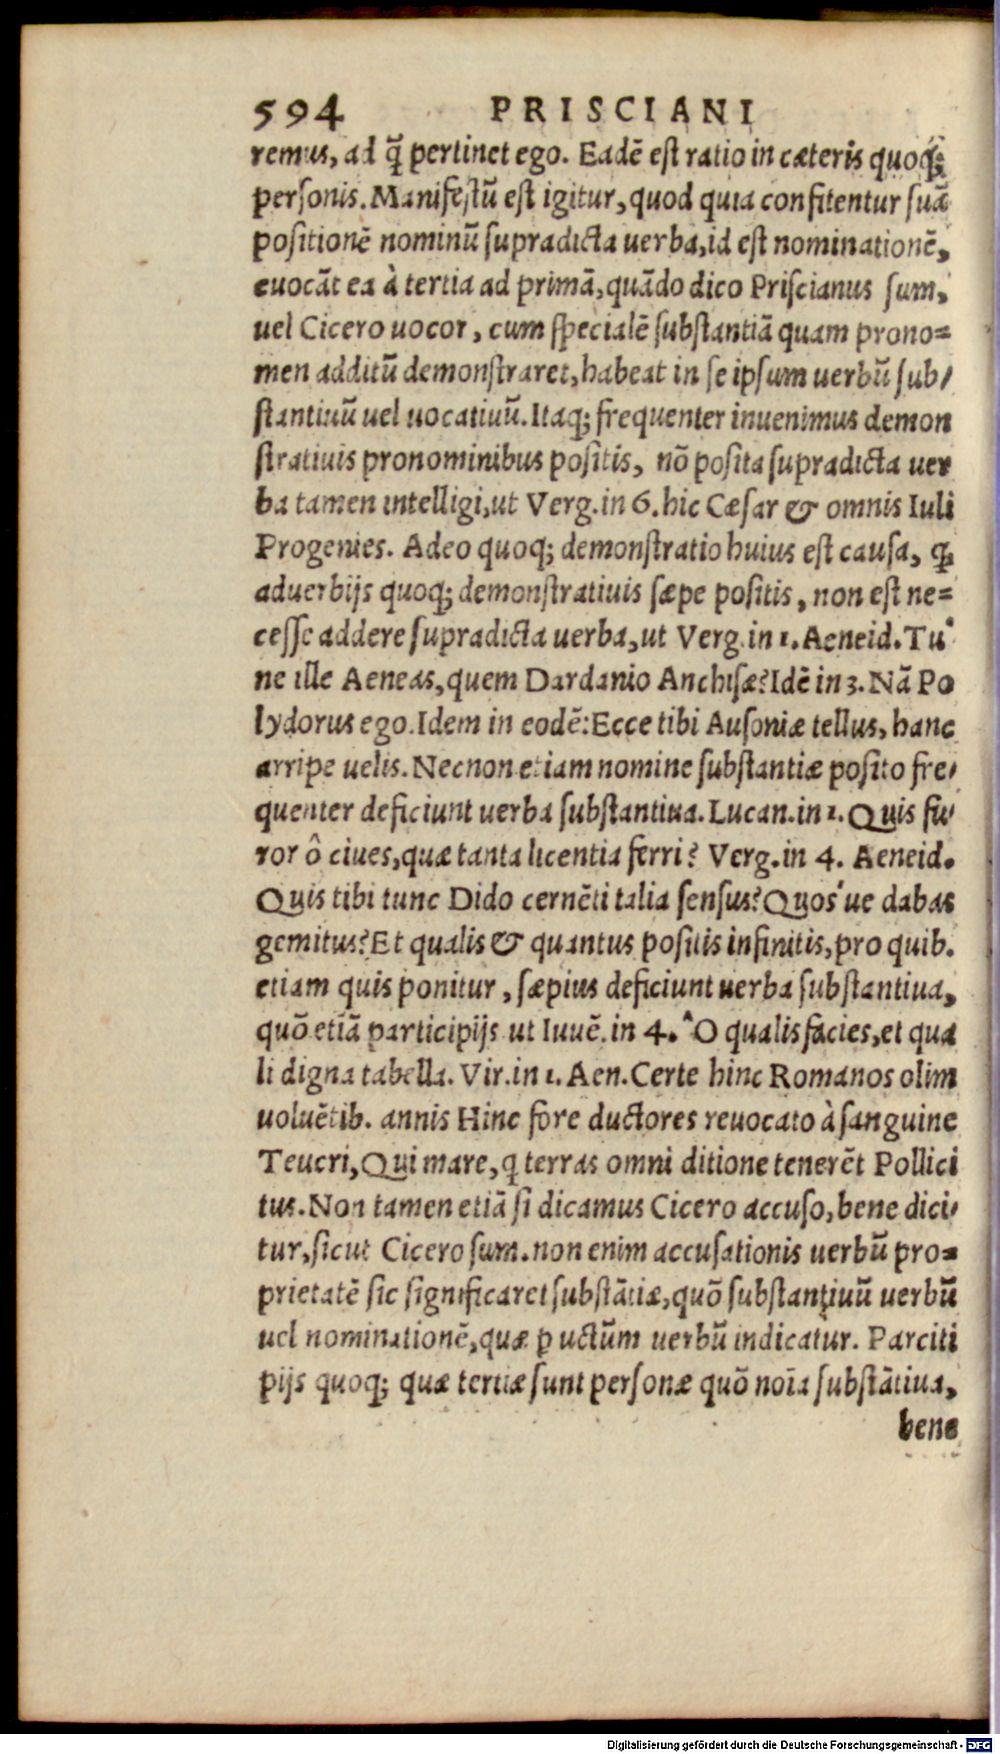 594 PRISCIANI
remus, ad q̃ pertinet ego. Eadē est ratio in cæteris quoq;
personis. Manifestū est igitur, quod quia confitentur suā
positionē nominū supradicta uerba, id est nominationē,
euocāt ea à tertia ad primā, quādo dico Priscianus sum,
uel Cicero uocor, cum specialē substantiā quam prono=
men additū demonstraret, habeat in se ipsum uerbū sub/
stantiuū uel uocatiuū. Itaq; frequenter inuenimus demon
stratiuis pronominibus positis, nō posita supradicta uer
ba tamen intelligi, ut Verg. in 6. hic Cæsar & omnis Iuli
Progenies. Adeo quoq; demonstratio huius est causa, ꝙ
aduerbijs quoq; demonstratiuis sæpe positis, non est ne=
cesse addere supradicta uerba, ut Verg. in 1. Aeneid. Tu'
ne ille Aeneas, quem Dardanio Anchisæ? Idē in 3. Nā Po
lydorus ego. Idem in eodē: Ecce tibi Ausoniæ tellus, hanc
arripe uelis. Necnon etiam nomine substantiæ posito fre/
quenter deficiunt uerba substantiua. Lucan. in 1. Quis fu/
ror ô ciues, quæ tanta licentia ferri? Verg. in 4. Aeneid.
Quis tibi tunc Dido cernēti talia sensus? Quos'ue dabas
gemitus? Et qualis & quantus positis infinitis, pro quib.
etiam quis ponitur, sæpius deficiunt uerba substantiua,
quō etiā participijs ut Iuuē. in 4. ^O qualis facies, et qua
li digna tabella. Vir. in 1. Aen. Certe hinc Romanos olim
uoluētib. annis Hinc fore ductores reuocato à sanguine
Teucri, Qui mare, q terras omni ditione tenerēt Pollici
tus. Non tamen etiā si dicamus Cicero accuso, bene dici/
tur, sicut Cicero sum. non enim accusationis uerbū pro=
prietatē sic significaret substātiæ, quō substantiuū uerbū
uel nominationē, quæ ꝑ uctūm uerbū indicatur. Parciti
pijs quoq; quæ tertiæ sunt personæ quō noīa substātiua,
bene
Digitalisierung gefördert durch die Deutsche Forschungsgemeinschaft - DFG